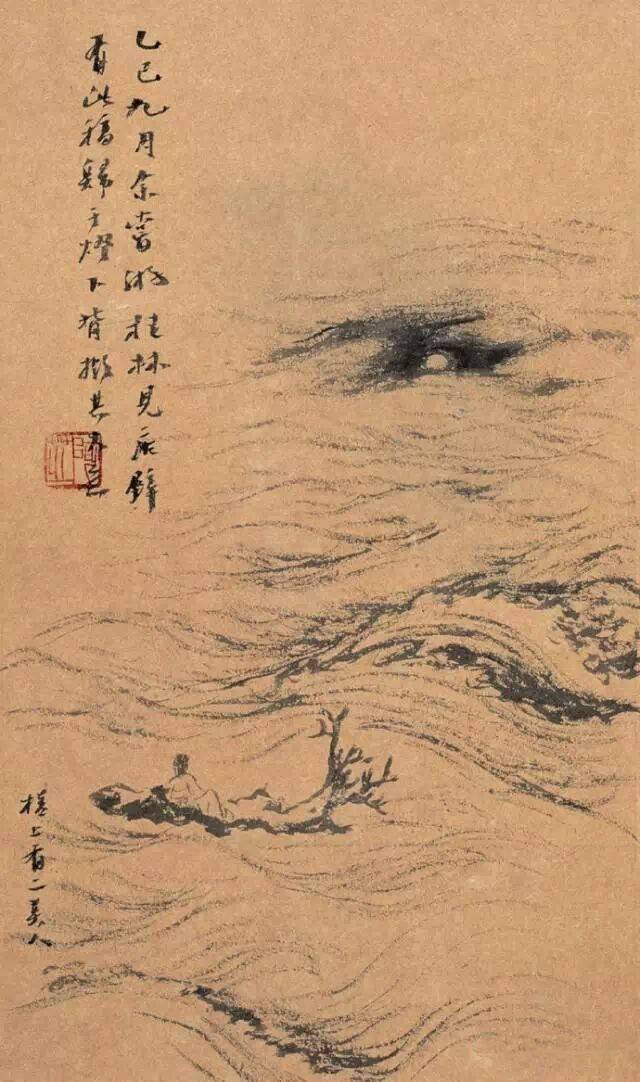 乙巳九月余嘗游桂林見
有此稿歸于燈下背擬其大意
槎上有二美人